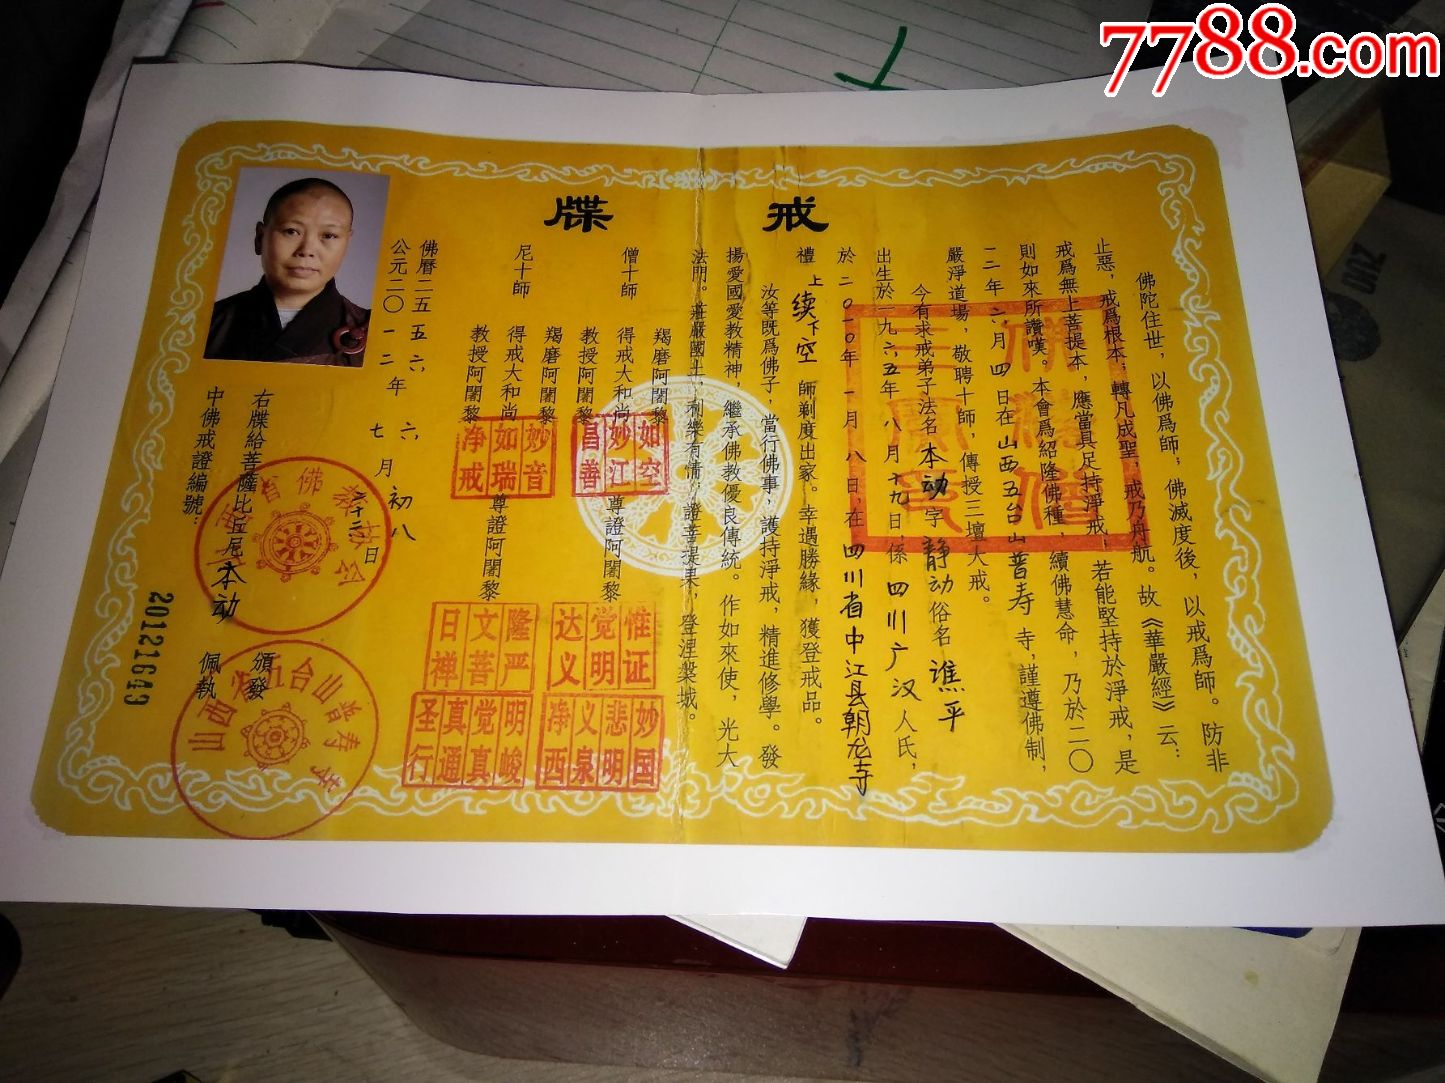 7788.com
戒牒
佛陀住世，以佛爲師；佛滅度後，以戒爲師。防非
止惡，戒爲根本；轉凡成聖，戒乃舟航。故《華嚴經》云：
戒爲無上菩提本，應當具足持淨戒；若能堅持於淨戒，是
則如來所讚嘆。本會爲紹隆佛種，續佛慧命，乃於二〇
一二年六月四日在山西五台山普寿寺，謹遵佛制，
嚴淨道場，敬聘十師，傳授三壇大戒。
今有求戒弟子法名本动字静动俗名谯平
出生於一九六五年八月十九日，係四川广汉人氏，
於二〇一〇年一月八日，在四川省中江县朝龙寺
禮上续下空師剃度出家。幸遇勝緣，獲登戒品。
汝等既爲佛子，當行佛事，護持淨戒，精進修學。發
揚愛國愛教精神，繼承佛教優良傳統。作如來使，光大
法門。莊嚴國土，利樂有情，證菩提果，登涅槃城。
僧十師
羯磨阿闍黎
得戒大和尚
教授阿闍黎
如空
妙江
昌善
尊證阿闍黎
惟证
觉明
达义
妙国
悲明
义泉
净西
尼十師
羯磨阿闍黎
得戒大和尚
教授阿闍黎
妙音
如瑞
净戒
尊證阿闍黎
隆严
文菩
日禅
明峻
觉真
真通
圣行
佛曆二五五六
公元二〇一二年六月初八
七二十二日
右牒給菩薩比丘尼本动
頒發
佩執
中佛戒證編號：
201211649
山西五台山普寿寺